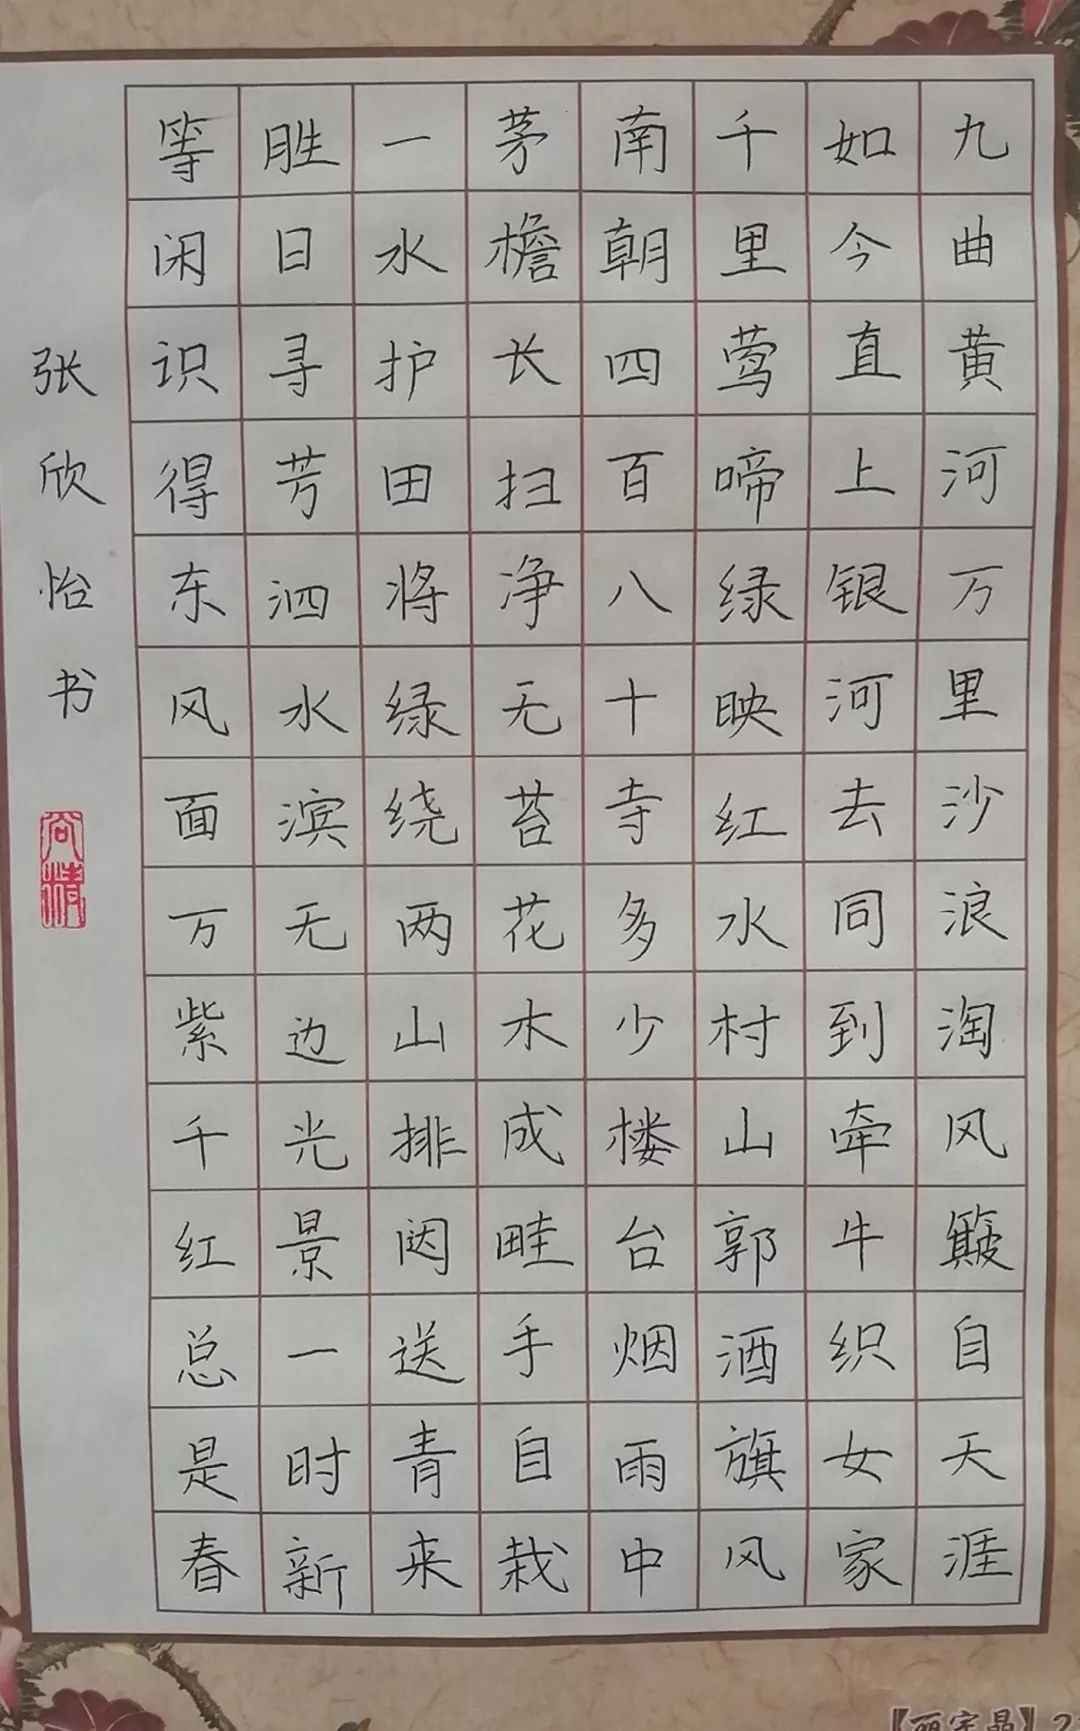 九曲黄河万里沙浪淘风簸自天涯
如今直上银河去同到牵牛织女家
千里莺啼绿映红水村山郭酒旗风
南朝四百八十寺多少楼台烟雨中
茅檐长扫净无苔花木成畦手自栽
一水护田将绿绕两山排闼送青来
胜日寻芳泗水滨无边光景一时新
等闲识得东风面万紫千红总是春
张欣怡书